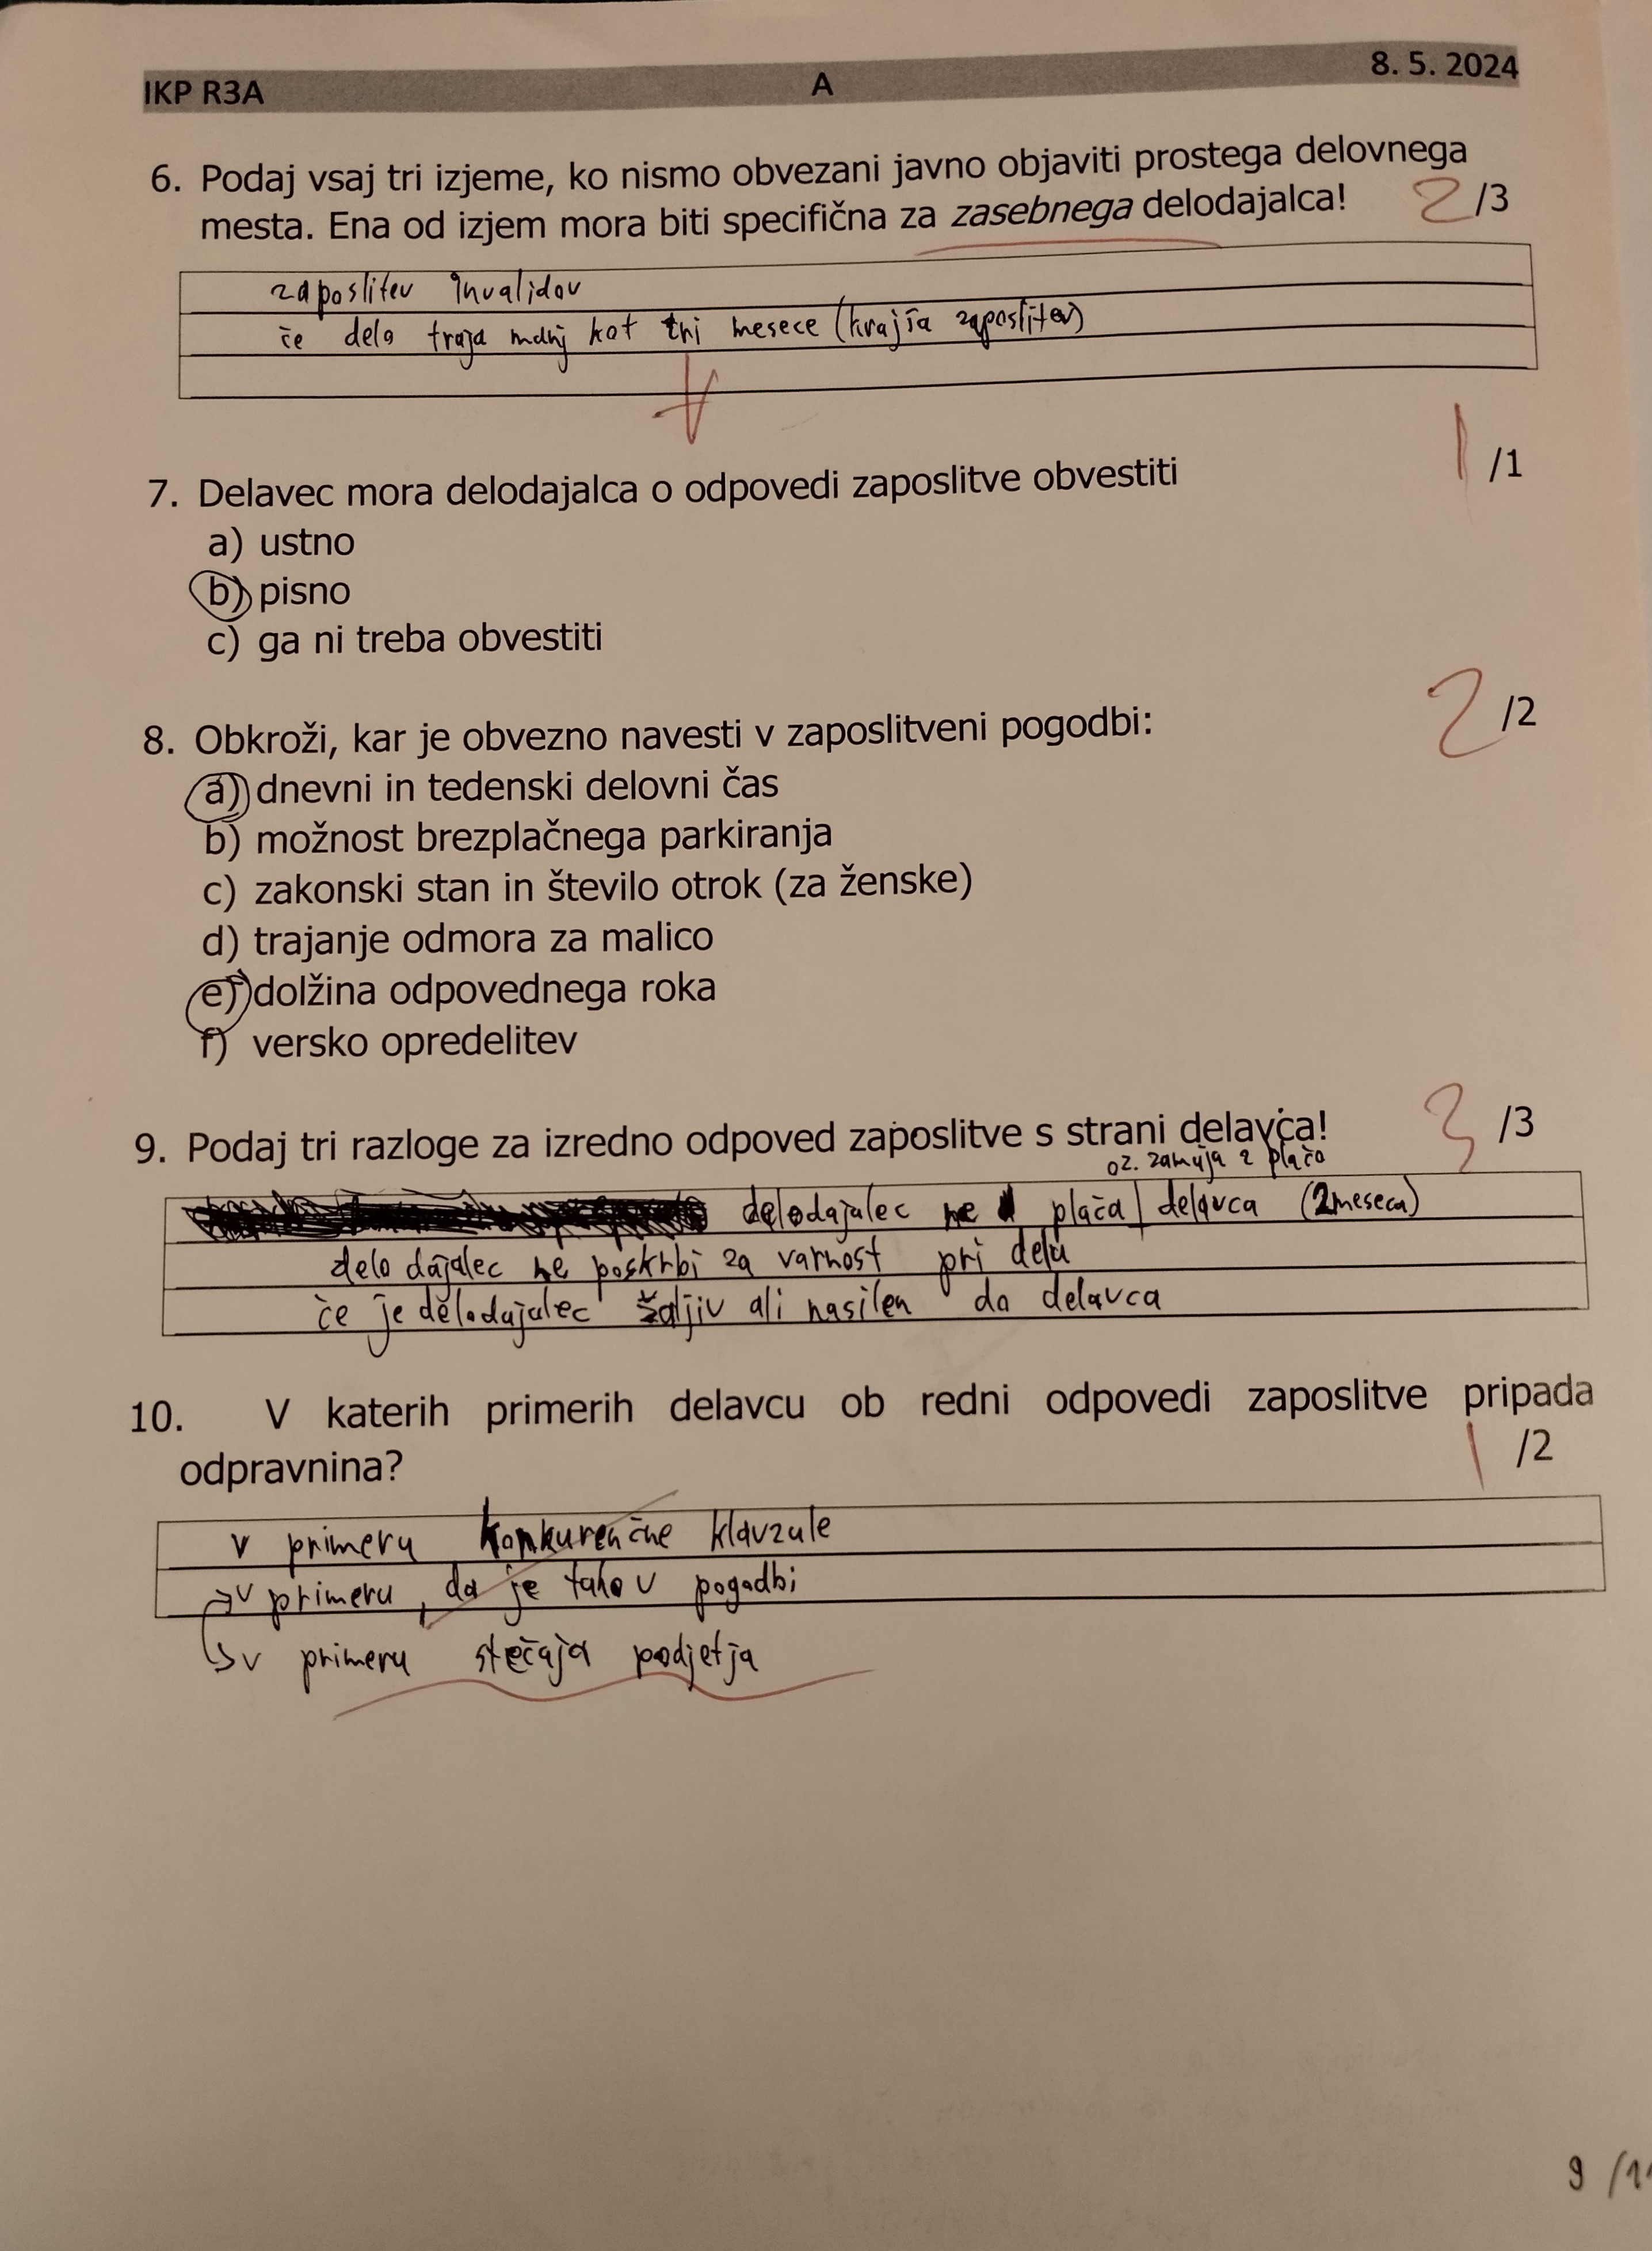 IKP R3A A 8. 5. 2024
6. Podaj vsaj tri izjeme, ko nismo obvezani javno objaviti prostega delovnega
mesta. Ena od izjem mora biti specifična za zasebnega delodajalca! 2/3
zaposlitev invalidov
če delo traja manj kot tri mesece (krajša zaposlitev)
7. Delavec mora delodajalca o odpovedi zaposlitve obvestiti 1/1
a) ustno
b) pisno
c) ga ni treba obvestiti
8. Obkroži, kar je obvezno navesti v zaposlitveni pogodbi: 2/2
a) dnevni in tedenski delovni čas
b) možnost brezplačnega parkiranja
c) zakonski stan in število otrok (za ženske)
d) trajanje odmora za malico
e) dolžina odpovednega roka
f) versko opredelitev
9. Podaj tri razloge za izredno odpoved zaposlitve s strani delavca! 3/3
oz. zamuja z plačo
delodajalec ne plača delavca (2meseca)
delodajalec ne poskrbi za varnost pri delu
če je delodajalec žaljiv ali nasilen do delavca
10. V katerih primerih delavcu ob redni odpovedi zaposlitve pripada
odpravnina? 1/2
v primeru konkurenčne klavzule
v primeru, da je tako v pogodbi
v primeru stečaja podjetja
9